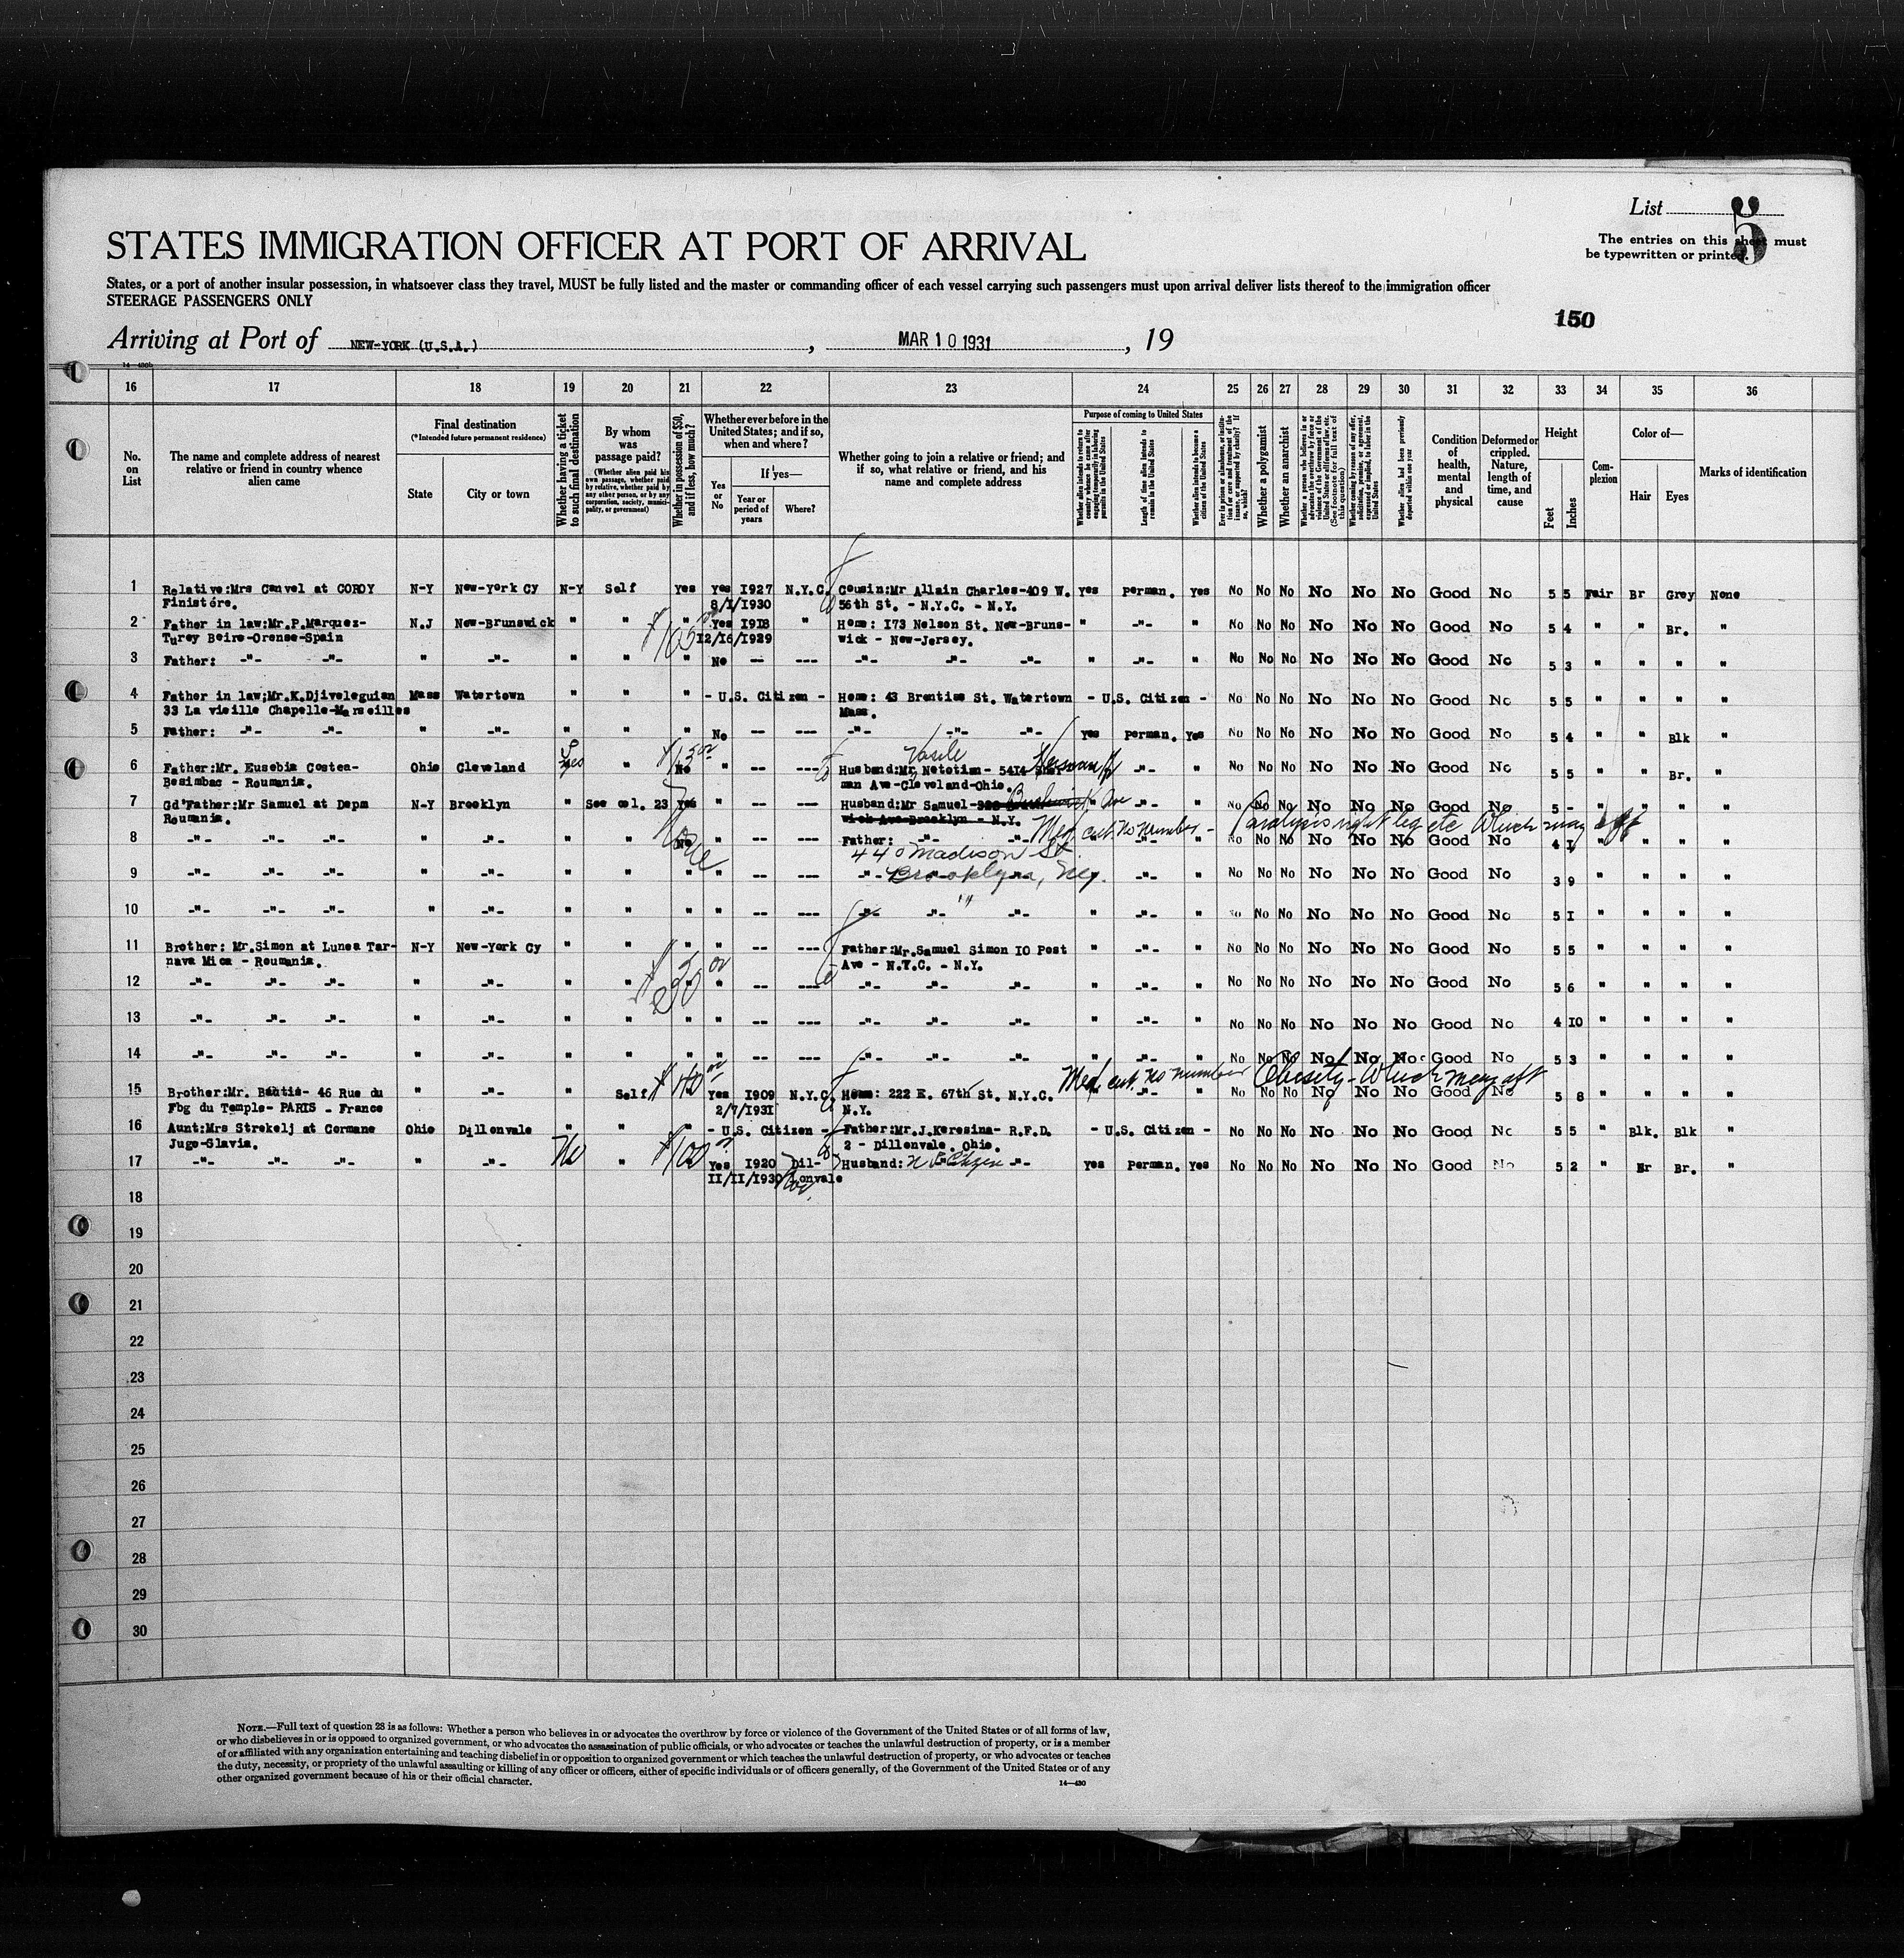 List 5
STATES IMMIGRATION OFFICER AT PORT OF ARRIVAL
The entries on this sheet must
be typewritten or printed.
States, or a port of another insular possession, in whatsoever class they travel, MUST be fully listed and the master or commanding officer of each vessel carrying such passengers must upon arrival deliver lists thereof to the immigration officer
STEERAGE PASSENGERS ONLY
150
Arriving at Port of NEW-YORK (U.S.A.) , MAR 10 1931 , 19
14—430b
16 17 18 19 20 21 22 23 24 25 26 27 28 29 30 31 32 33 34 35 36
No. on List
The name and complete address of nearest relative or friend in country whence alien came
Final destination
(*Intended future permanent residence)
State
City or town
Whether having a ticket to such final destination
By whom was passage paid?
(Whether alien paid his own passage, whether paid by relative, whether paid by any other person, or by any corporation, society, municipality, or government)
Whether in possession of $50, and if less, how much?
Whether ever before in the United States; and if so, when and where?
Yes or No
If yes—
Year or period of years
Where?
Whether going to join a relative or friend; and if so, what relative or friend, and his name and complete address
Purpose of coming to United States
Whether alien intends to return to country whence he came after engaging temporarily in laboring pursuits in the United States
Length of time alien intends to remain in the United States
Whether alien intends to become a citizen of the United States
Ever in prison or almshouse, or institution for care and treatment of the insane, or supported by charity? If so, which?
Whether a polygamist
Whether an anarchist
Whether a person who believes in or advocates the overthrow by force or violence of the Government of the United States or all forms of law, etc. (See footnote for full text of this question)
Whether coming by reason of any offer, solicitation, promise, or agreement, expressed or implied, to labor in the United States
Whether alien had been previously deported within one year
Condition of health, mental and physical
Deformed or crippled. Nature, length of time, and cause
Height
Feet
Inches
Complexion
Color of—
Hair
Eyes
Marks of identification
1 Relative:Mrs Canvel at COROY N-Y New-York Cy N-Y Self Yes Yes 1927 N.Y.C. Cousin:Mr Allain Charles-409 W. yes perman. yes No No No No No No Good No 5 5 Fair Br Grey None
Finistére. 8/1/1930 56th St. - N.Y.C. - N.Y.
2 Father in law:Mr.P.Marquez- N.J New-Brunswick " " " Yes 1918 " Home: 173 Nelson St. New-Bruns- " -"- " No No No No No No Good No 5 4 " " Br. "
Turey Beire-Orense-Spain $105 12/16/1929 wick - New-Jersey.
3 Father: -"- -"- " -"- " " " No -- --- -"- -"- -"- " -"- " No No No No No No Good No 5 3 " " " "
4 Father in law;Mr.K.Djiveleguian Mass Watertown " " " - U.S. Citizen - Home: 43 Brentiss St. Watertown - U.S. Citizen - No No No No No No Good No 5 5 " " " "
33 La vieille Chapelle-Marseilles Mass.
5 Father: -"- -"- " -"- " " " No -- --- -"- -"- -"- yes perman. Yes No No No No No No Good No 5 4 " " Blk "
Vasile
6 Father:Mr. Eusebia Costea- Ohio Cleveland yes " No " -- --- Husband:Mr Netotian- 5414 -"- " No No No No No No Good No 5 5 " " Br. "
Besimbac - Roumania. man Ave-Cleveland-Ohio.
7 Gd'Father:Mr Samuel at Depm N-Y Brooklyn " See col. 23 yes " -- --- Husband:Mr Samuel- " -"- " No No No No No No Good No 5 - " " " "
Roumania. wick Ave-Brooklyn - N.Y.
Med cert. no number - Paralysis right leg etc which may aff
8 -"- -"- -"- " -"- " " No " -- --- Father: -"- -"- " -"- " No No No No No No Good No 4 1 " " " "
440 Madison St.
9 -"- -"- -"- " -"- " " " " -- --- -"- Brooklyn, N.Y. -"- " No No No No No No Good No 3 9 " " " "
10 -"- -"- -"- " -"- " " " " -- --- -"- -"- -"- " -"- " No No No No No No Good No 5 1 " " " "
11 Brother: Mr.Simon at Lunea Tar- N-Y New-York Cy " " " " -- --- Father:Mr.Samuel Simon 10 Post " -"- " No No No No No No Good No 5 5 " " " "
nava Mica - Roumania. Ave - N.Y.C. - N.Y.
12 -"- -"- -"- " -"- " " " " -- --- -"- -"- -"- " -"- " No No No No No No Good No 5 6 " " " "
13 -"- -"- -"- " -"- " " " " -- --- -"- -"- -"- " -"- " No No No No No No Good No 4 10 " " " "
14 -"- -"- -"- " -"- " " " " -- --- -"- -"- -"- " -"- " No No No No No No Good No 5 3 " " " "
Med cert. no number Obesity - Which may aff
15 Brother:Mr. Bautis- 46 Rue du " -"- " Self $40 Yes 1909 N.Y.C. Home: 222 E. 67th St. N.Y.C. " -"- " No No No No No No Good No 5 8 " " " "
Fbg du Temple- PARIS - France 2/7/1931 N.Y.
16 Aunt:Mrs Strekelj at Cormane Ohio Dillonvale " " " - U.S. Citizen - Father:Mr.J.Keresina- R.F.D. - U.S. Citizen - No No No No No No Good No 5 5 " Blk. Blk "
Jugo-Slavia. 2 - Dillonvale. Ohio.
17 -"- -"- -"- " -"- No " $100 Yes 1920 Dil- Husband: -"- yes perman. Yes No No No No No No Good No 5 2 " Br Br. "
11/11/1930 lonvale
18
19
20
21
22
23
24
25
26
27
28
29
30
NOTE.—Full text of question 28 is as follows: Whether a person who believes in or advocates the overthrow by force or violence of the Government of the United States or of all forms of law,
or who disbelieves in or is opposed to organized government, or who advocates the assassination of public officials, or who advocates or teaches the unlawful destruction of property, or is a member
of or affiliated with any organization entertaining and teaching disbelief in or opposition to organized government or which teaches the unlawful destruction of property, or who advocates or teaches
the duty, necessity, or propriety of the unlawful assaulting or killing of any officer or officers, either of specific individuals or of officers generally, of the Government of the United States or of any
other organized government because of his or their official character.
14—430